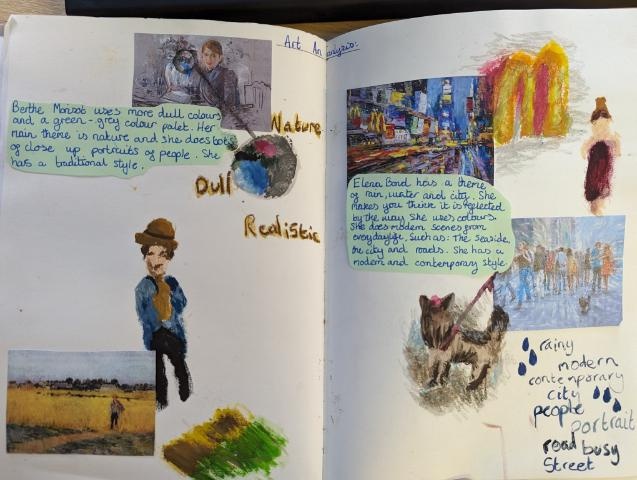 Art Analyzis:
Berthe Morisot uses more dull colours
and a green-grey colour palet. Her
main theme is nature and she does lots
of close up portraits of people. She
has a traditional style.
Nature
Dull
Realistic
Elena Bond has a theme
of rain, water and city. She
makes you think it is reflected
by the way she uses colours.
She does modern scenes from
everydaylife. Such as: The seaside,
the city and roads. She has a
modern and contemporary style.
rainy
modern
contemporary
city
people
portrait
road busy
Street